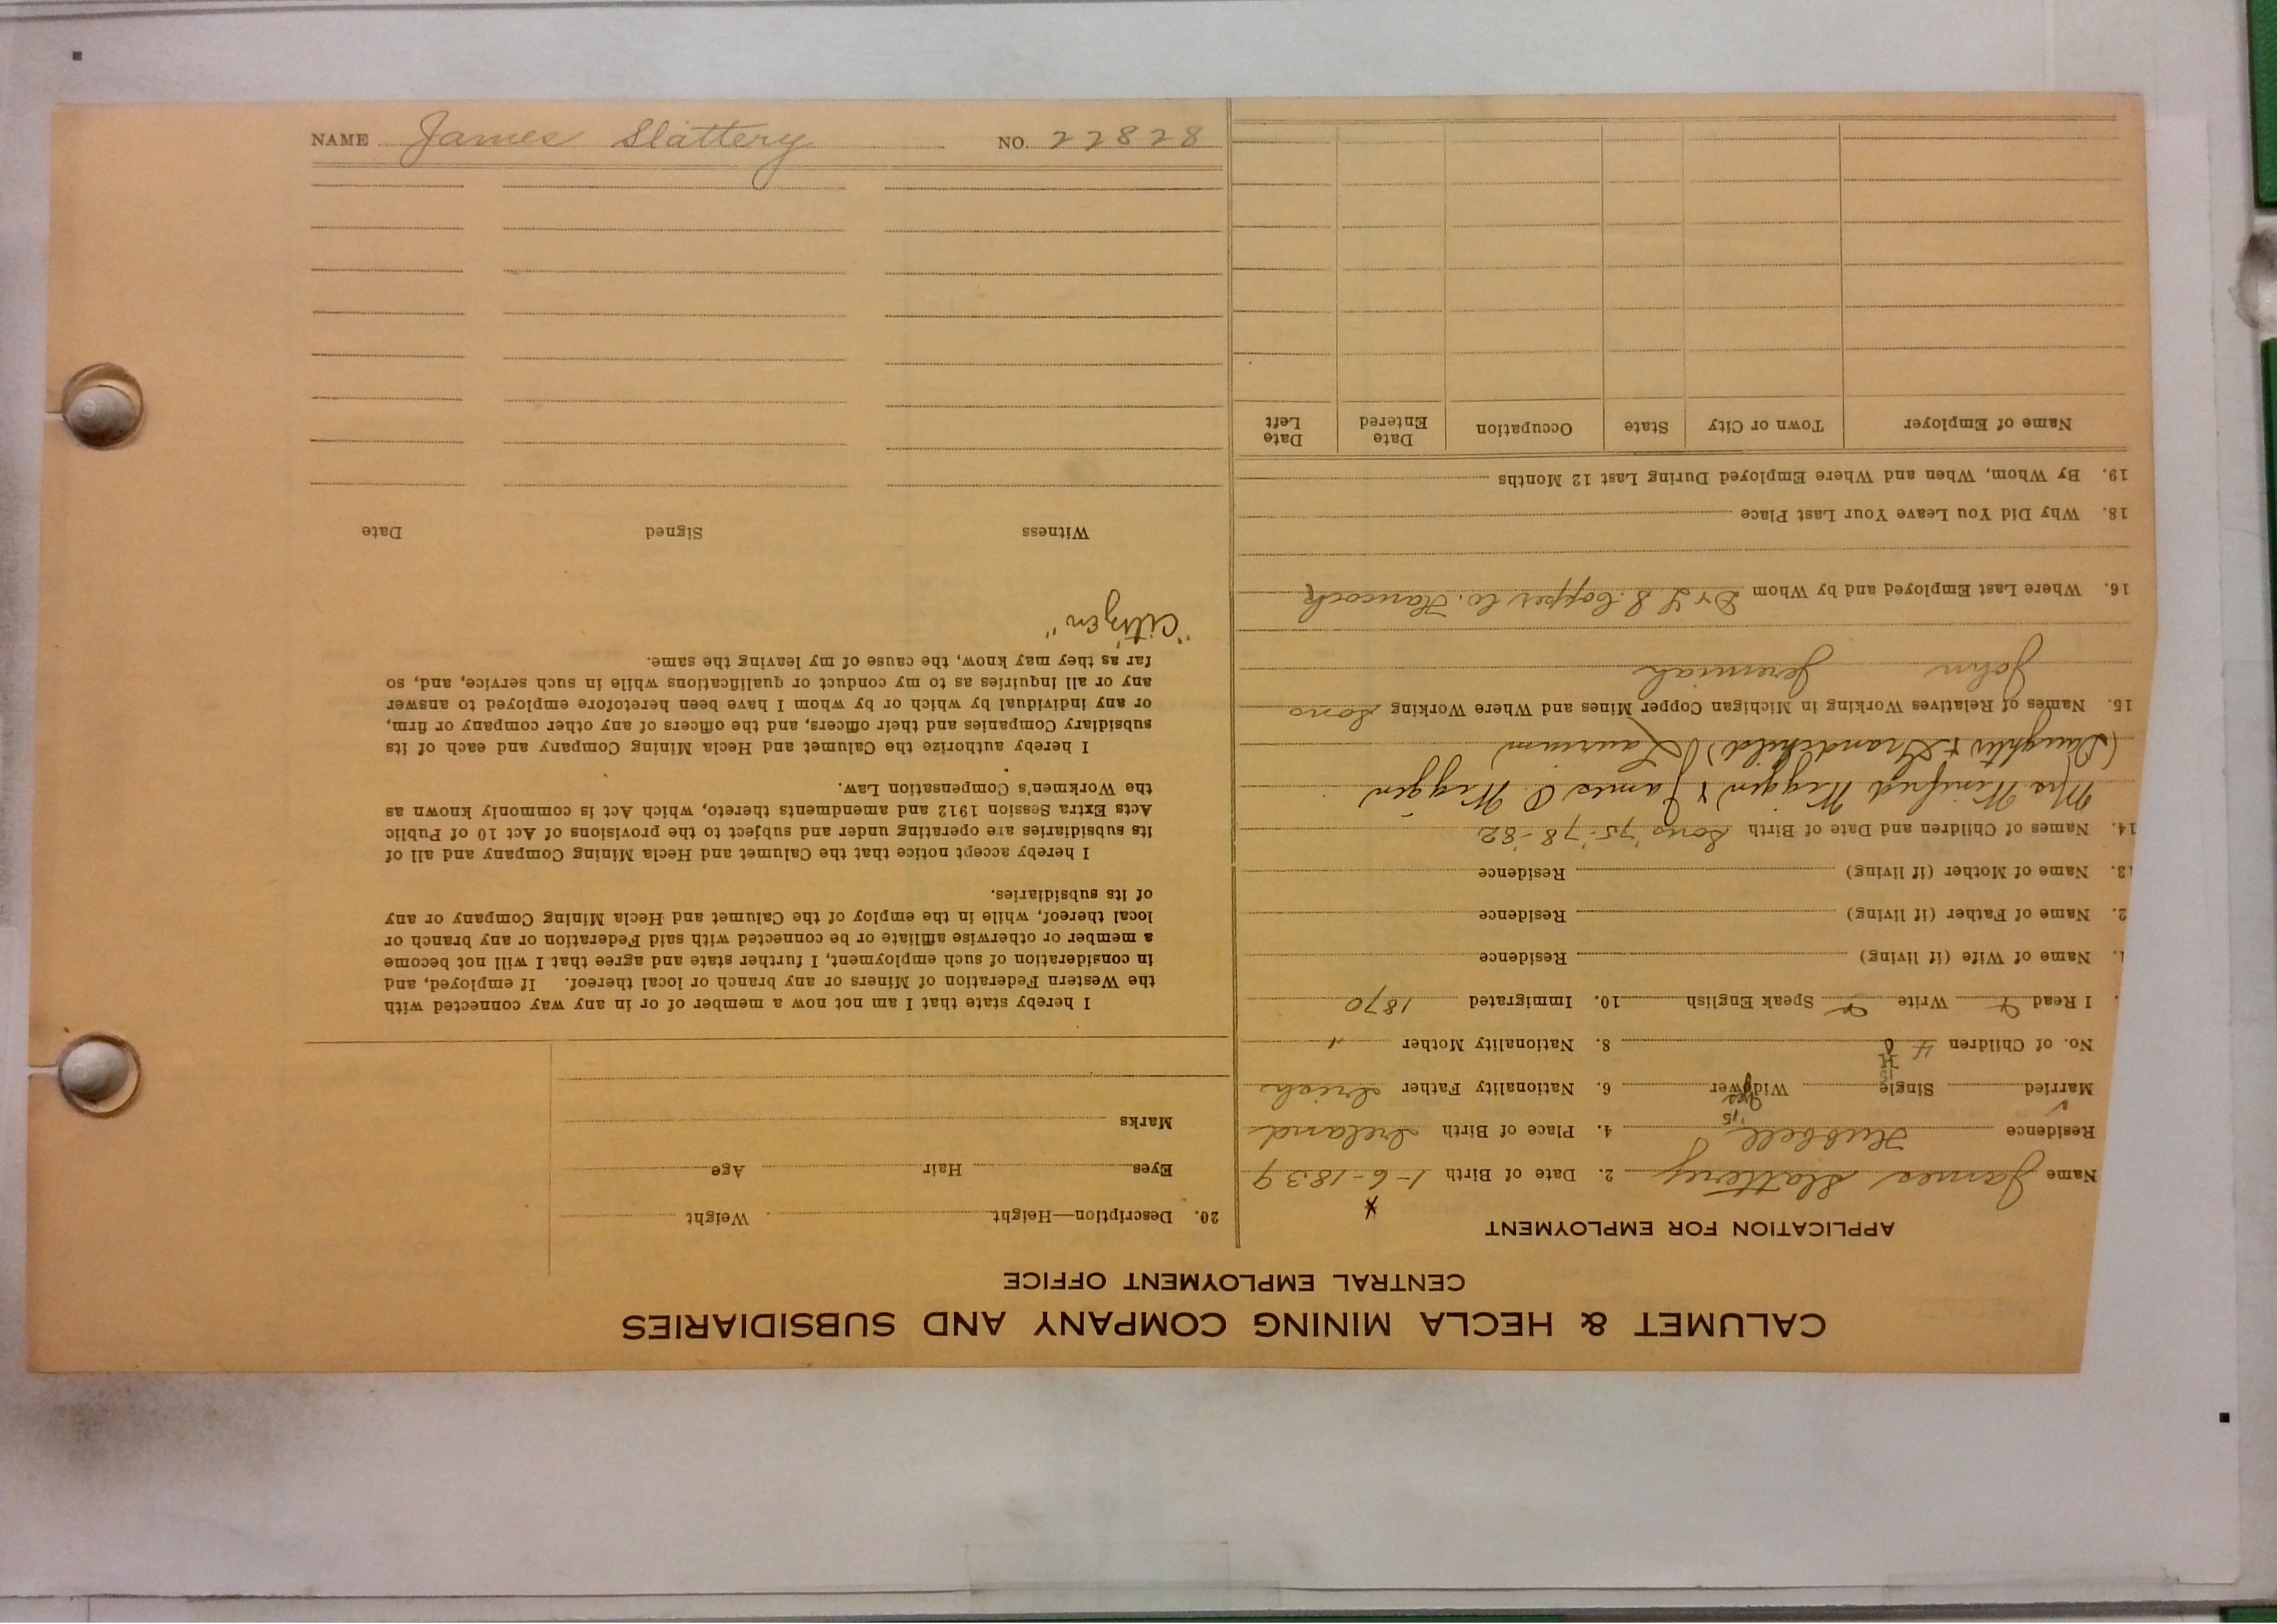 NAME James Slattery NO. 22828
CALUMET & HECLA MINING COMPANY AND SUBSIDIARIES
CENTRAL EMPLOYMENT OFFICE
APPLICATION FOR EMPLOYMENT
Name James Slattery 2. Date of Birth 1-6-1839
Residence Hubbell 4. Place of Birth Ireland
Married Single Widower Yes '15 6. Nationality Father Irish
No. of Children 4 8. Nationality Mother "
I Read Write Speak English 10. Immigrated 1870
1. Name of Wife (if living) Residence
2. Name of Father (if living) Residence
13. Name of Mother (if living) Residence
14. Names of Children and Date of Birth Sons '75-'78-'82
Mrs Winifred & James O.
(Daughter & Grandchild) Laurium
15. Names of Relatives Working in Michigan Copper Mines and Where Working Sons
John Jeremiah
16. Where Last Employed and by Whom Copper Co. Hancock
18. Why Did You Leave Your Last Place
19. By Whom, When and Where Employed During Last 12 Months
Name of Employer Town or City State Occupation Date Entered Date Left
20. Description—Height Weight
Eyes Hair Age
Marks
I hereby state that I am not now a member of or in any way connected with
the Western Federation of Miners or any branch or local thereof. If employed, and
in consideration of such employment, I further state and agree that I will not become
a member or otherwise affiliate or be connected with said Federation or any branch or
local thereof, while in the employ of the Calumet and Hecla Mining Company or any
of its subsidiaries.
I hereby accept notice that the Calumet and Hecla Mining Company and all of
its subsidiaries are operating under and subject to the provisions of Act 10 of Public
Acts Extra Session 1912 and amendments thereto, which Act is commonly known as
the Workmen's Compensation Law.
I hereby authorize the Calumet and Hecla Mining Company and each of its
subsidiary Companies and their officers, and the officers of any other company or firm,
or any individual by which or by whom I have been heretofore employed to answer
any or all inquiries as to my conduct or qualifications while in such service, and, so
far as they may know, the cause of my leaving the same.
"Citizen"
Witness Signed Date